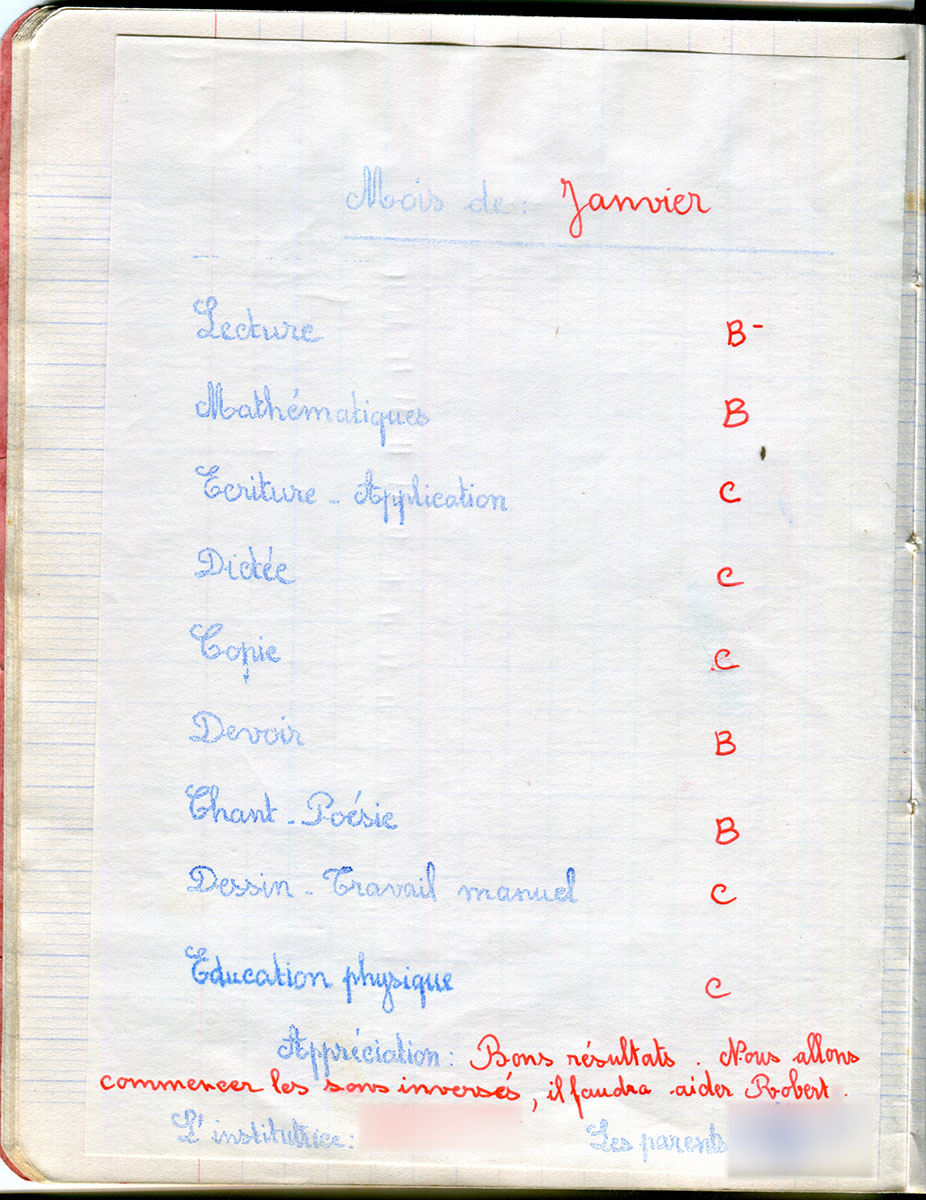 Mois de : Janvier
Lecture B-
Mathématiques B
Ecriture - Application C
Dictée C
Copie C
Devoir B
Chant - Poésie B
Dessin - Travail manuel C
Education physique C
Appréciation : Bons résultats. Nous allons
commencer les sons inversés, il faudra aider Robert.
L'institutrice : Les parents